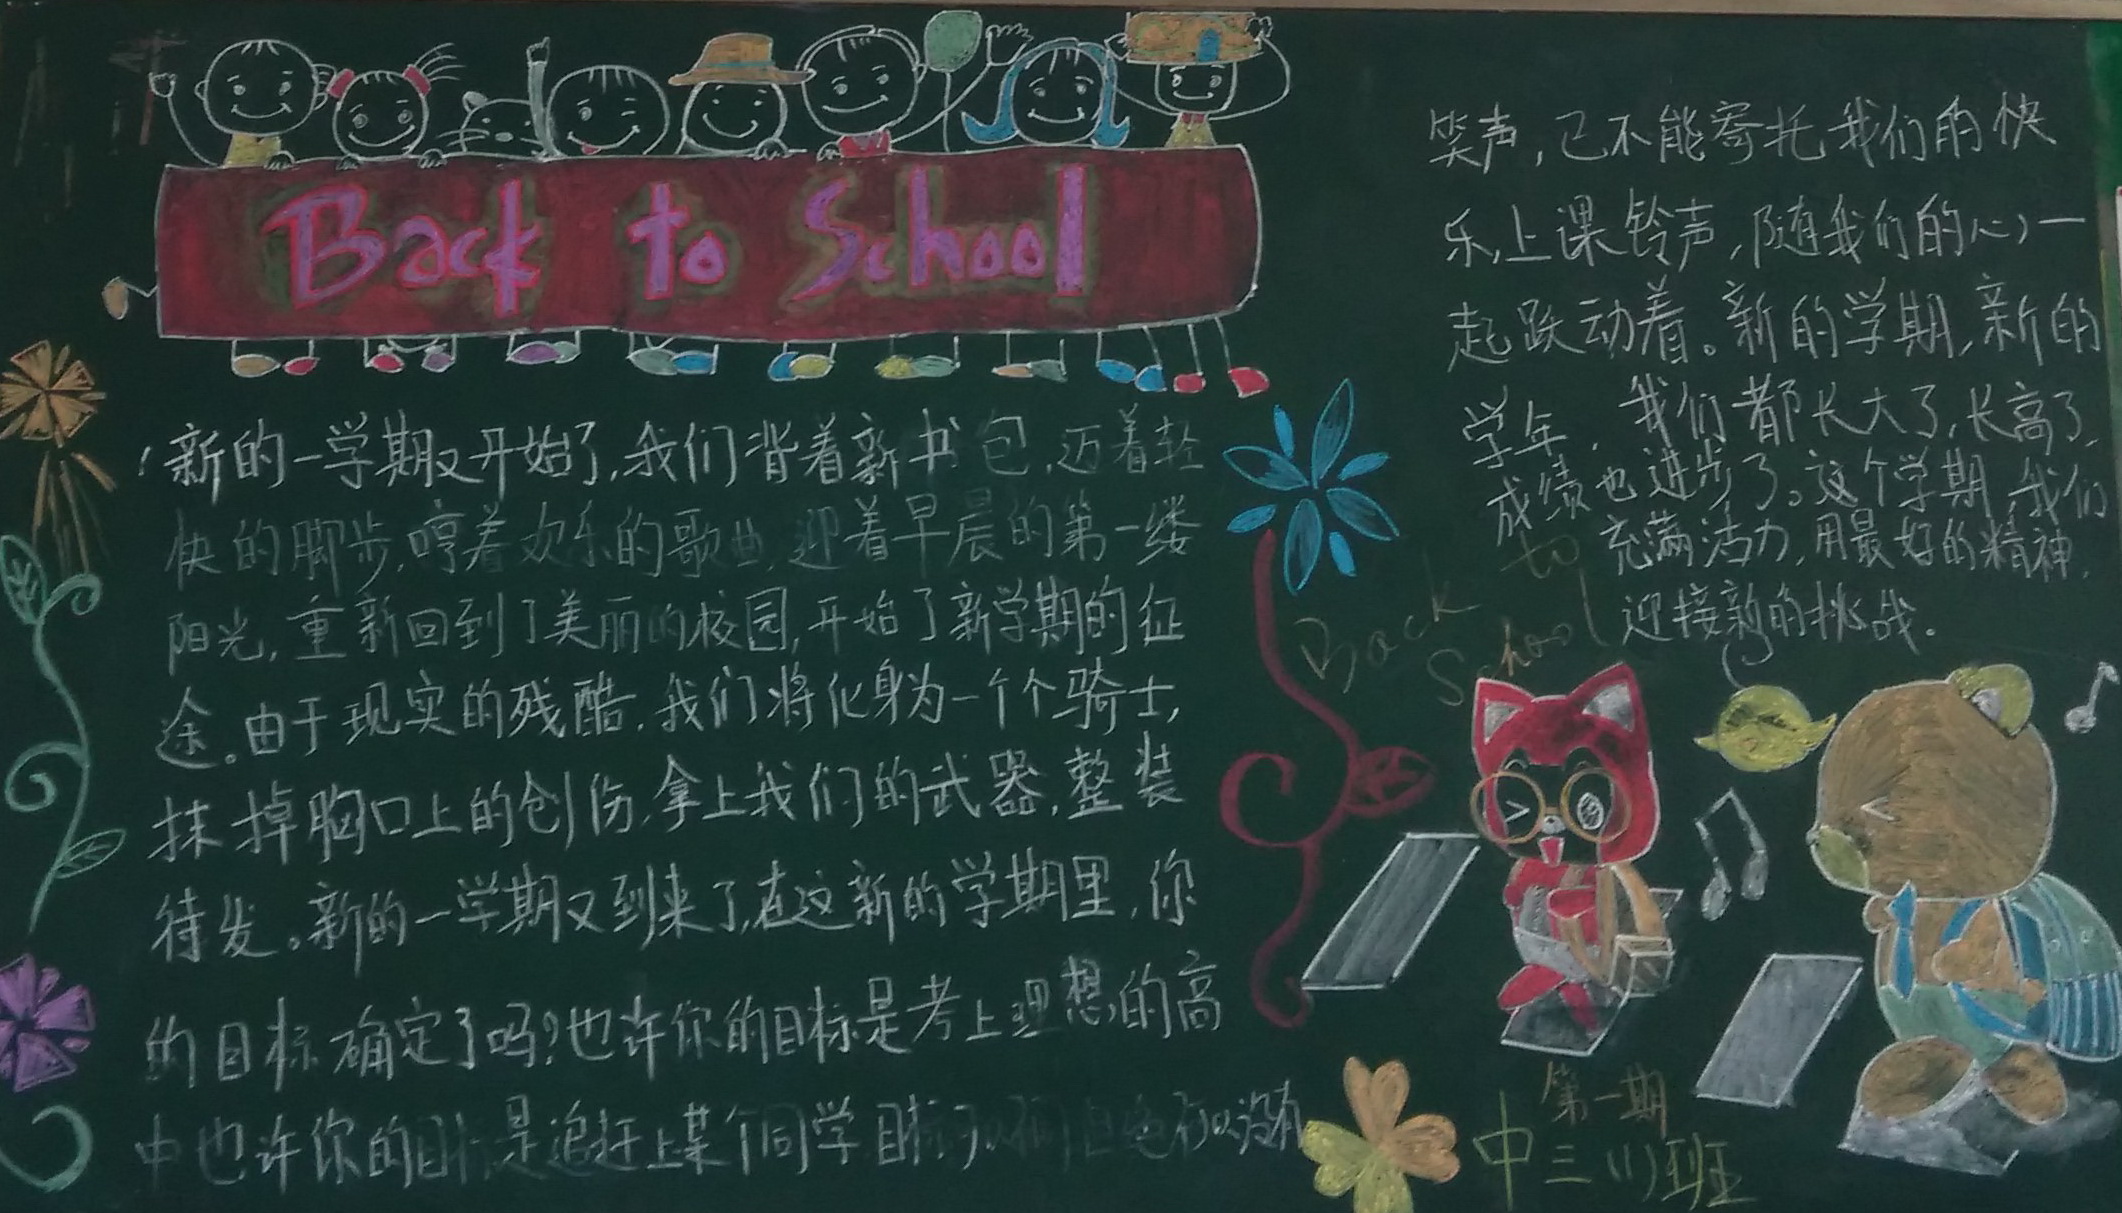 Back to School
新的一学期又开始了,我们背着新书包,迈着轻
快的脚步,哼着欢乐的歌曲,迎着早晨的第一缕
阳光,重新回到了美丽的校园,开始了新学期的征
途。由于现实的残酷,我们将化身为一个个骑士,
抹掉胸口上的创伤,拿上我们的武器,整装
待发。新的一学期又到来了,在这新的学期里,你
的目标确定了吗?也许你的目标是考上理想的高
中也许你的目标是追赶上某个同学目标可以不同但绝不可以没有
笑声,已不能寄托我们的快
乐,上课铃声,随我们的心一
起跃动着。新的学期,新的
学年,我们都长大了,长高了,
成绩也进步了。这个学期,我们
充满活力,用最好的精神,
迎接新的挑战。
Back to
School
第一期
中三(1)班